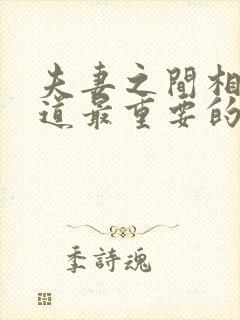 夫妻之間相
道最重要的
季詩魂